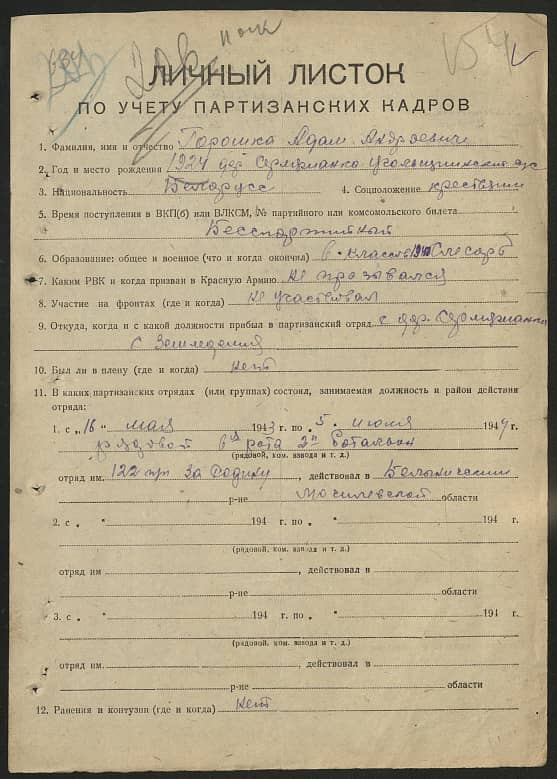 ЛИЧНЫЙ ЛИСТОК
ПО УЧЕТУ ПАРТИЗАНСКИХ КАДРОВ
1. Фамилия, имя и отчество Горошка Адам Андреевич
2. Год и место рождения 1924 дер.
3. Национальность Беларусс 4. Соцположение крестянин
5. Время поступления в ВКП(б) или ВЛКСМ, № партийного или комсомольского билета
Бесспартийный
6. Образование: общее и военное (что и когда окончил) 6 классов Слесарь
7. Каким РВК и когда призван в Красную Армию не празывался
8. Участие на фронтах (где и когда) не участвовал
9. Откуда, когда и с какой должности прибыл в партизанский отряд с дер.
с Земледелия
10. Был ли в плену (где и когда) нет
11. В каких партизанских отрядах (или группах) состоял, занимаемая должность и район действия
отряда:
1. с „16“ мая 1943 г. по „5“ июля 1944 г.
рядовой 6й рота 2й баталион
(рядовой, ком. взвода и т. д.)
отряд им. 122 пп За Родину, действовал в Белыничский
р-не Могилевской области
2. с „ “ 194 г. по „ “ 194 г.
(рядовой, ком. взвода и т. д.)
отряд им , действовал в
р-не области
3. с „ “ 194 г. по „ “ 194 г.
(рядовой, ком. взвода и т. д.)
отряд им. , действовал в
р-не области
12. Ранения и контузии (где и когда) нет